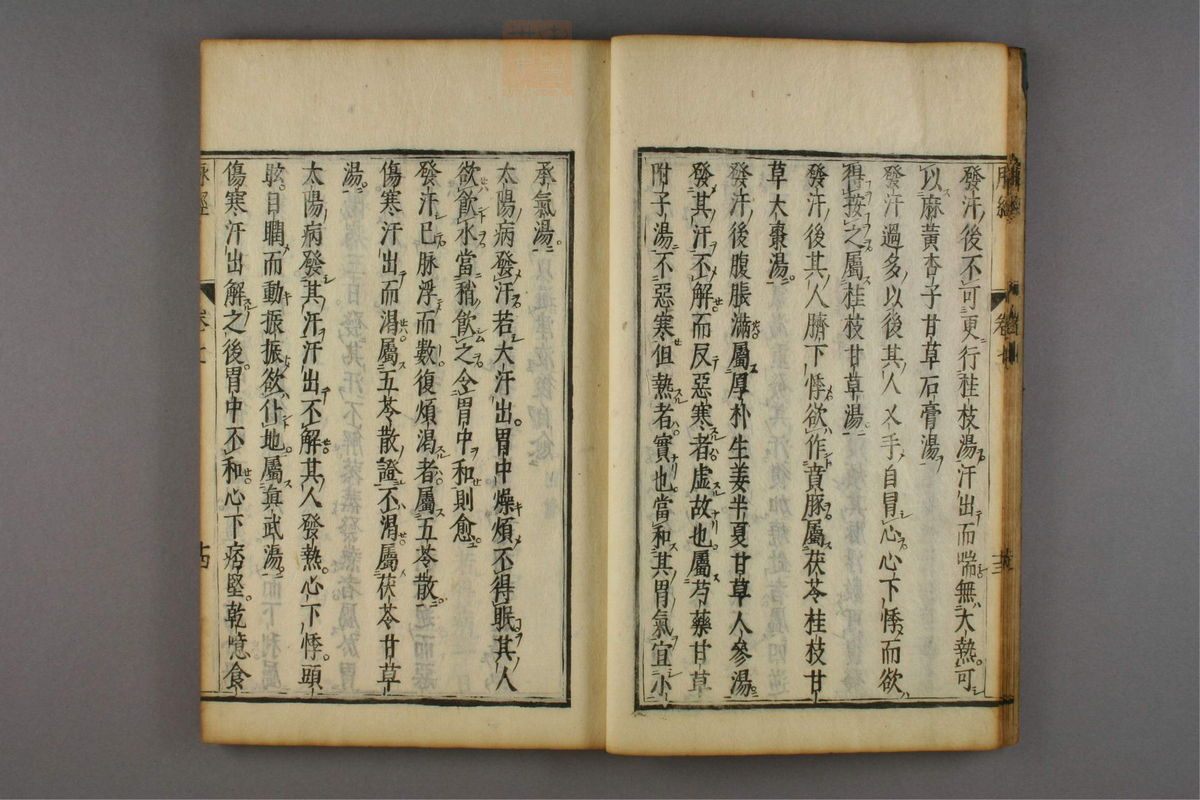 發汗後不可更行桂枝湯汗出而喘無大熱可
以麻黄杏子甘草石膏湯
發汗過多以後其人叉手自冒心心下悸而欲
得按之屬桂枝甘草湯
發汗後其人臍下悸欲作賁豚屬茯苓桂枝甘
草大棗湯
發汗後腹脹滿屬厚朴生姜半夏甘草人參湯
發其汗不解而反惡寒者虚故也屬芍藥甘草
附子湯不惡寒但熱者實也當和其胃氣宜小
承氣湯
太陽病發汗若大汗出胃中燥煩不得眠其人
欲飲水當稍飲之令胃中和則愈
發汗已脉浮而數復煩渴者屬五苓散
傷寒汗出而渴屬五苓散證不渴屬茯苓甘草
湯
太陽病發其汗汗出不解其人發熱心下悸頭
眩身瞤而動振振欲仆地屬眞武湯
傷寒汗出解之後胃中不和心下痞堅乾噫食
脉經